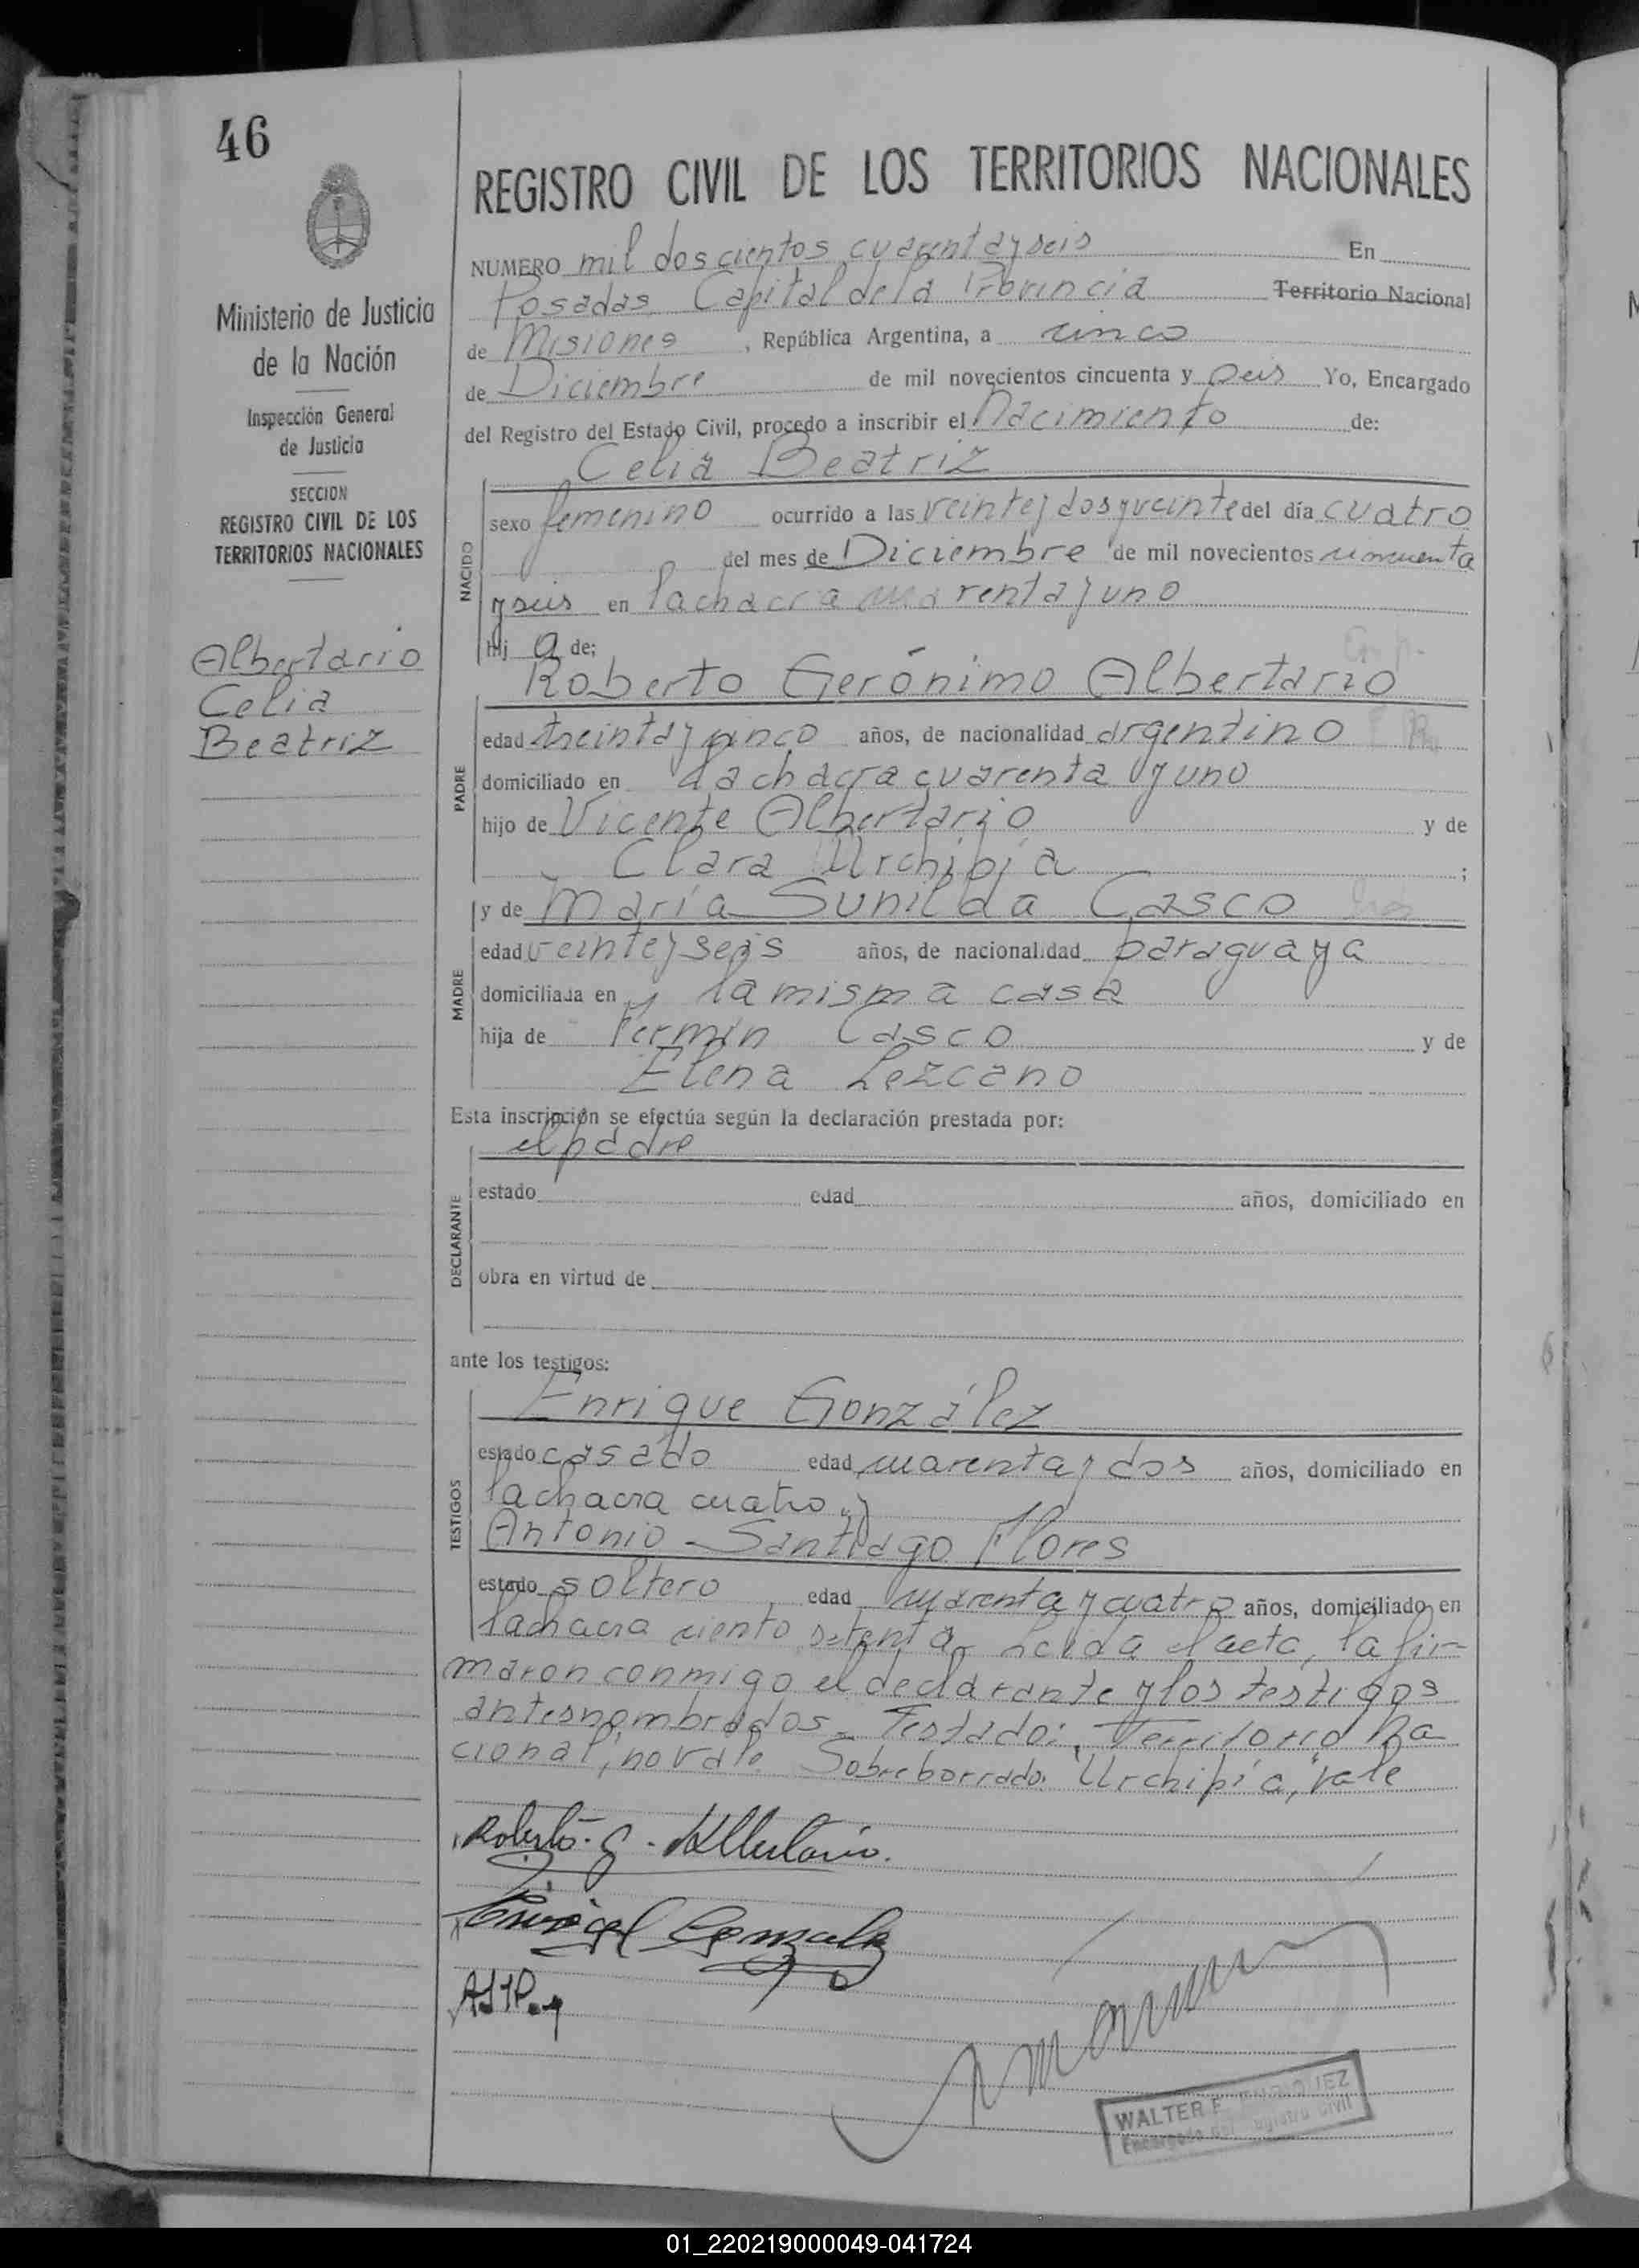 46
Ministerio de Justicia
de la Nación
Inspección General
de Justicia
SECCION
REGISTRO CIVIL DE LOS
TERRITORIOS NACIONALES
Albertario
Celia
Beatriz
REGISTRO CIVIL DE LOS TERRITORIOS NACIONALES
NUMERO mil doscientos cuarenta y seis En
Posadas, Capital de la Provincia Territorio Nacional
de Misiones, República Argentina, a cinco
de Diciembre de mil novecientos cincuenta y seis Yo, Encargado
del Registro del Estado Civil, procedo a inscribir el Nacimiento de:
Celia Beatriz
NACIDO
sexo femenino ocurrido a las veinte y dos y veinte del día cuatro
del mes de Diciembre de mil novecientos cincuenta
y seis en la chacra cuarenta y uno
hij a de;
Roberto Gerónimo Albertario
PADRE
edad treinta y cinco años, de nacionalidad argentino
domiciliado en la chacra cuarenta y uno
hijo de Vicente Albertario y de
Clara Urchipía ;
y de María Sunilda Casco
MADRE
edad veinte y seis años, de nacionalidad paraguaya
domiciliada en la misma casa
hija de Fermín Casco y de
Elena Lezcano
Esta inscripción se efectúa según la declaración prestada por:
el padre
DECLARANTE
estado edad años, domiciliado en
obra en virtud de
ante los testigos:
Enrique González
TESTIGOS
estado casado edad cuarenta y dos años, domiciliado en
la chacra cuatro y
Antonio Santiago Flores
estado soltero edad cuarenta y cuatro años, domiciliado en
la chacra ciento setenta. Leida el acta, la fir-
maron conmigo el declarante y los testigos
antesnombrados. Testado: "Territorio Na
cional", no vale. Sobreborrado: "Urchipía", vale
Roberto. G. Albertario.
Enrique Gonzalez
WALTER E.
Encargado del Registro Civil
01_220219000049-041724